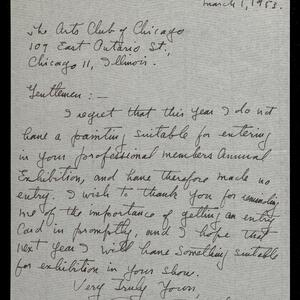 March 1, 1953.
The Arts Club of Chicago
109 East Ontario St.,
Chicago 11, Illinois.
Gentlemen:-
I regret that this year I do not
have a painting suitable for entering
in your professional members Annual
Exhibition, and have therefore made no
entry. I wish to thank you for reminding
me of the importance of getting an entry
card in promptly, and I hope that
next year I will have something suitable
for exhibition in your show.
Very Truly Yours,